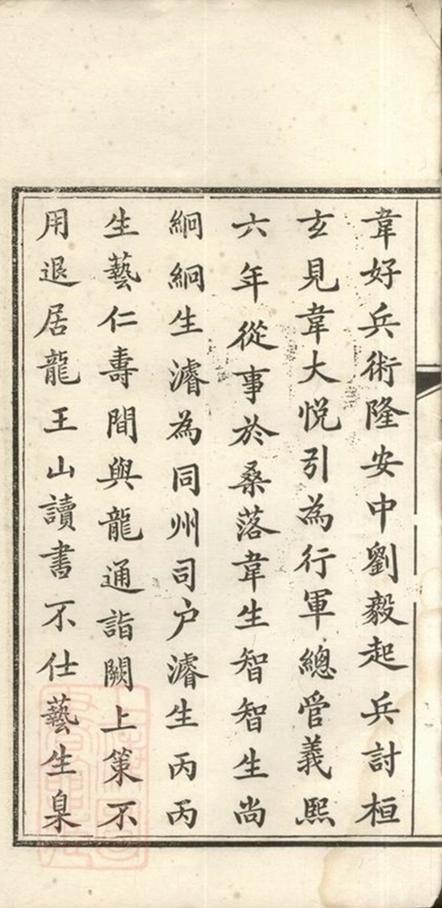 韋好兵術隆安中劉毅起兵討桓
玄見韋大悅引為行軍總管義熙
六年從事於桑落韋生智智生尚
絅絅生濬為同州司户濬生丙丙
生藝仁壽間與龍通詣闕上策不
用退居龍王山讀書不仕藝生臯